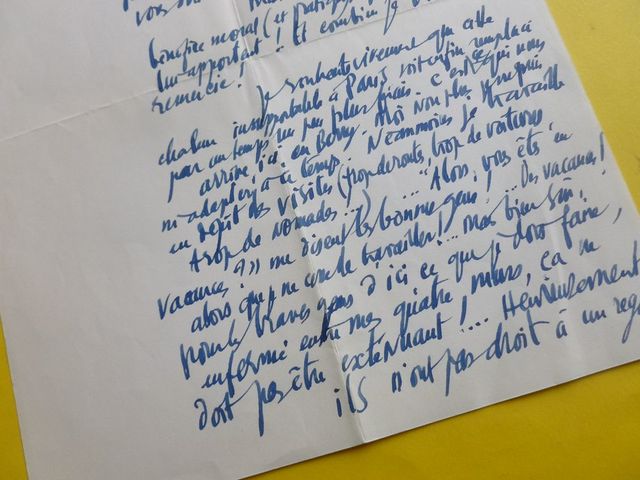 vous
bénéfice moral (et pratique
lui apportent ! Et combien je v
remercie !
Je souhaite vivement que cette
chaleur insupportable à Paris soit enfin remplacée
par un temps un peu plus frais. C'est ce qui nous
arrive, ici, en Berry. Moi non plus je ne puis
m'adapter à ce temps. Néanmoins je travaille
en dépit des visites (trop de routes, trop de voitures,
trop de nomades..) "Alors, vous êtes en
vacances ?" me disent les bonnes gens ! ... Des vacances !
alors que je ne cesse de travailler ! ... mais bien sûr,
pour les braves gens d'ici ce que je dois faire,
enfermé entre mes quatre murs, ça ne
doit pas être exténuant ! ... Heureusement
ils n'ont pas droit à un reg